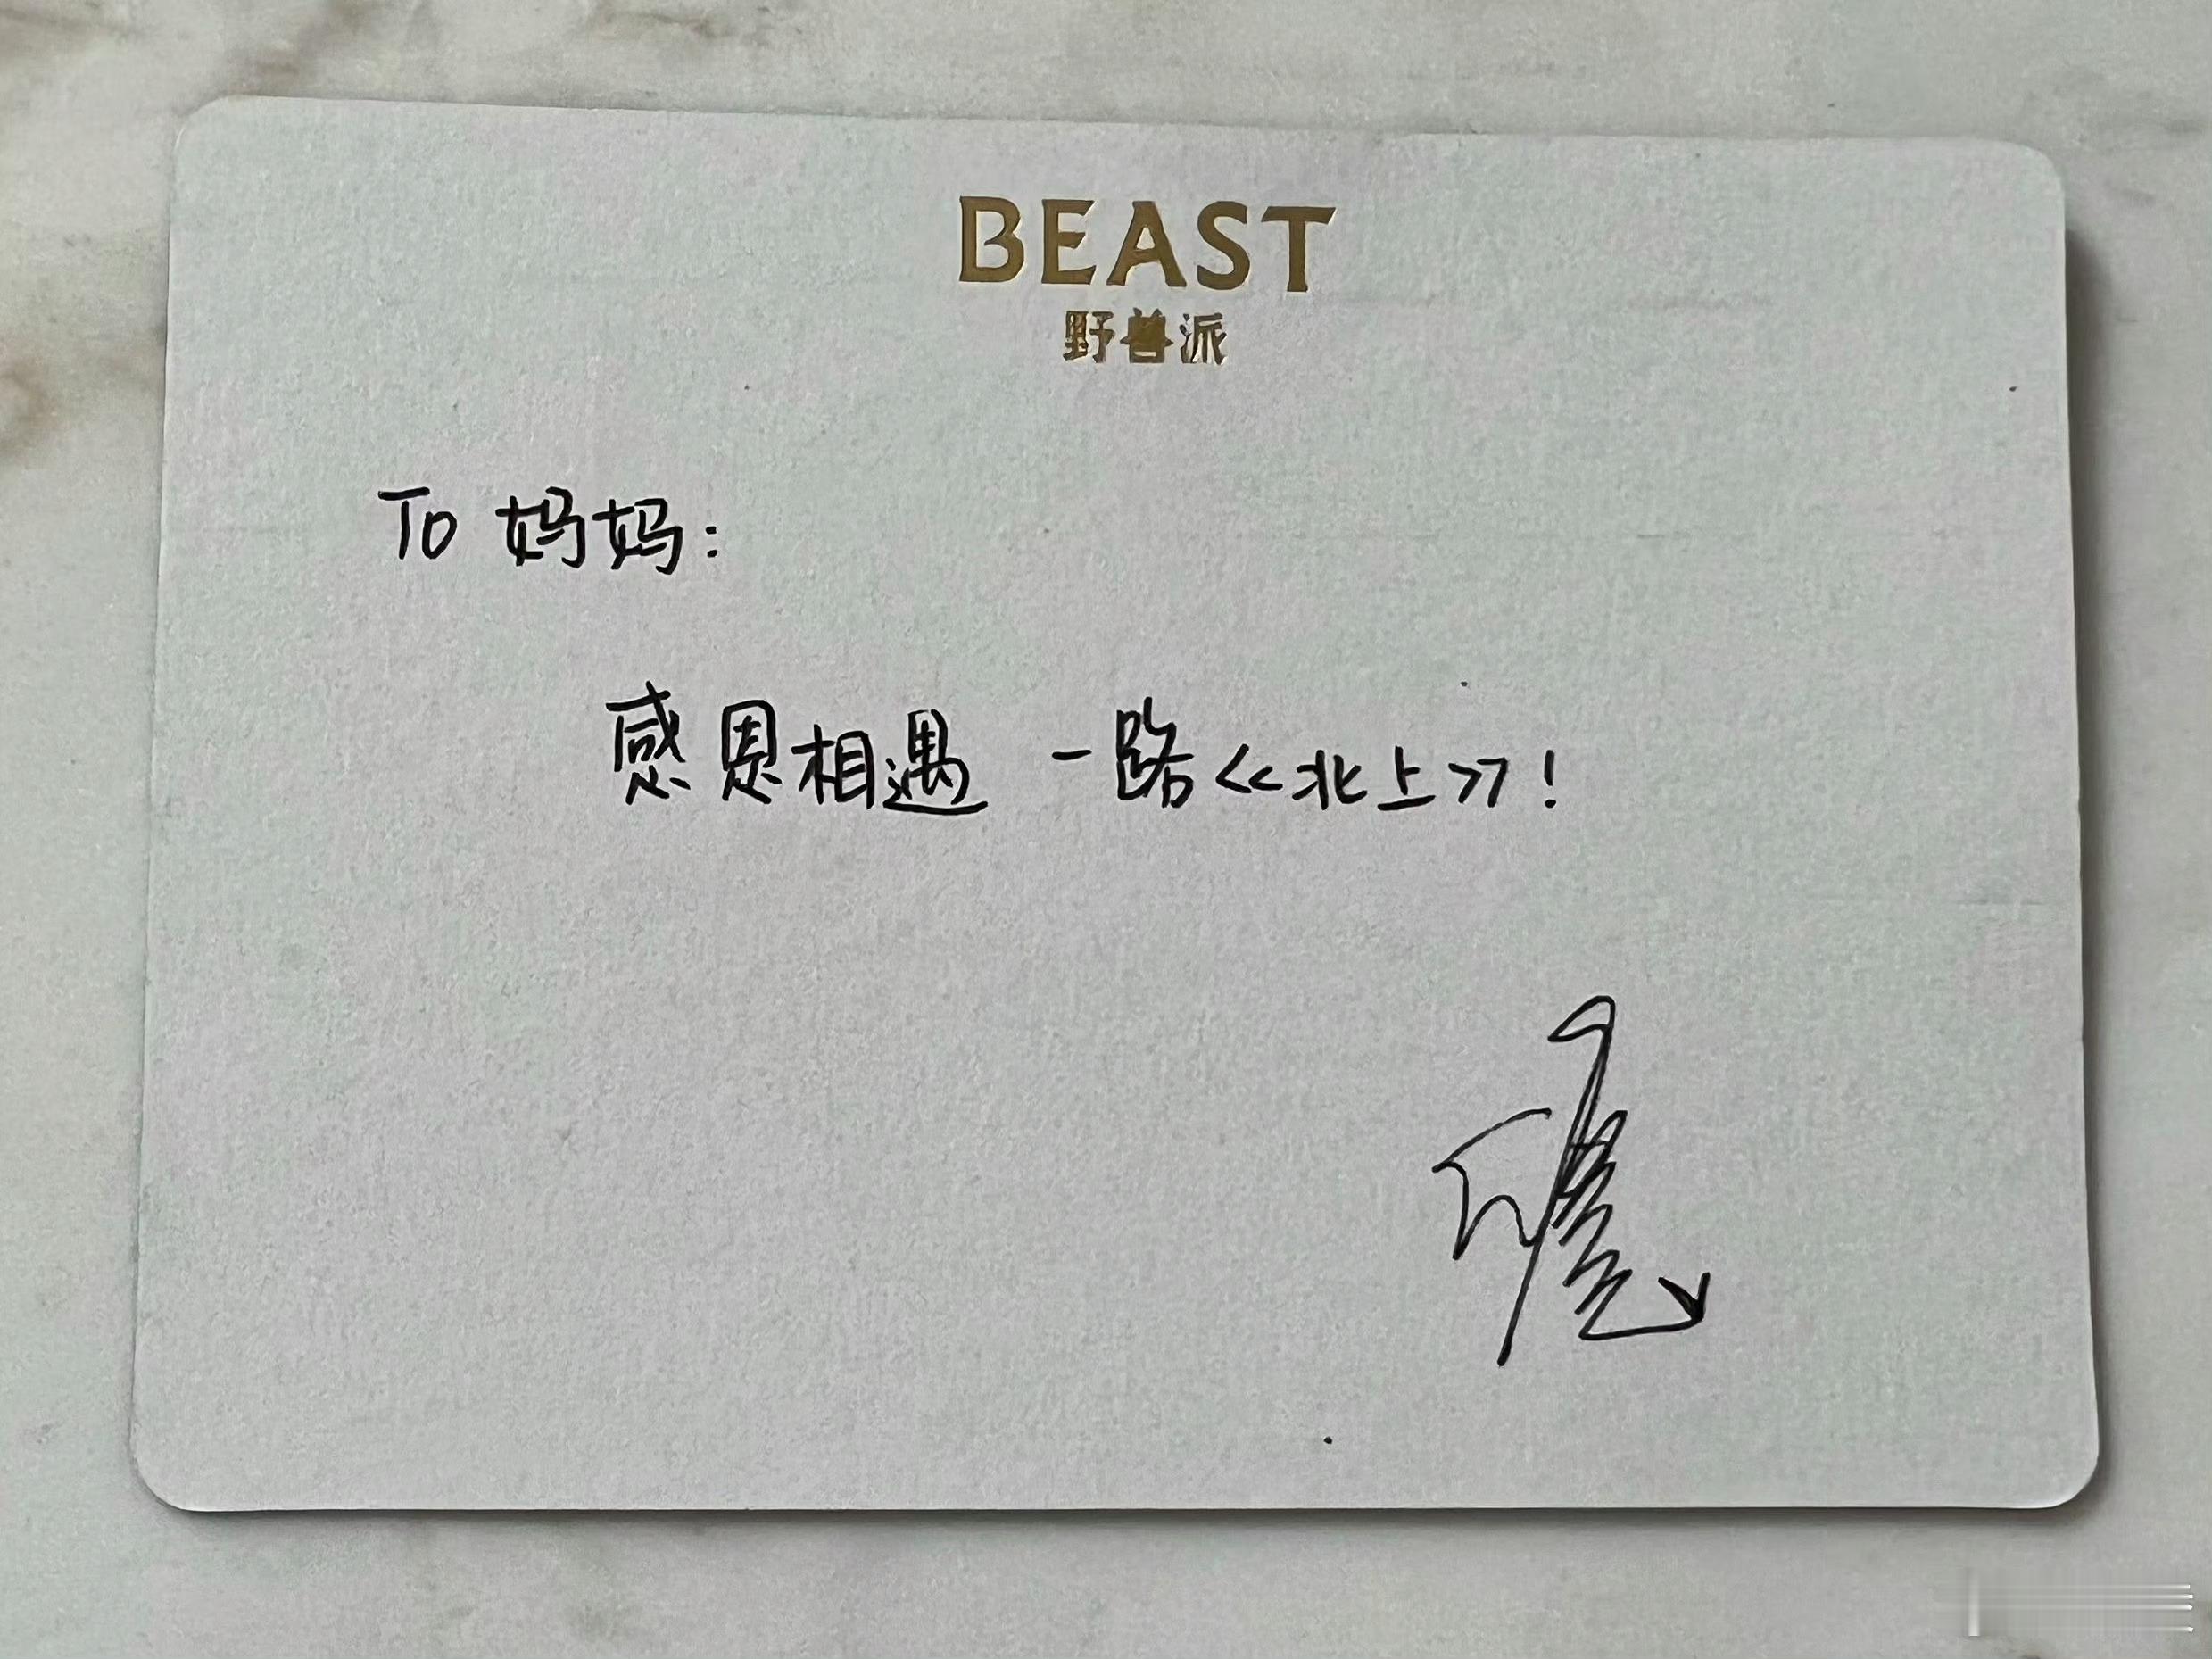 BEAST
野兽派
To 妈妈:
感恩相遇 一路<<北上>>!